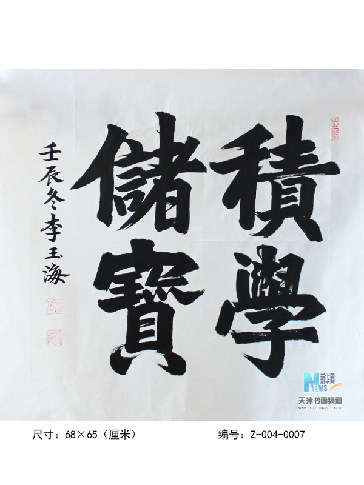 積學
儲寶
壬辰冬李玉海
NEWS
天津书画频道
尺寸：68×65（厘米）
编号：Z-004-0007